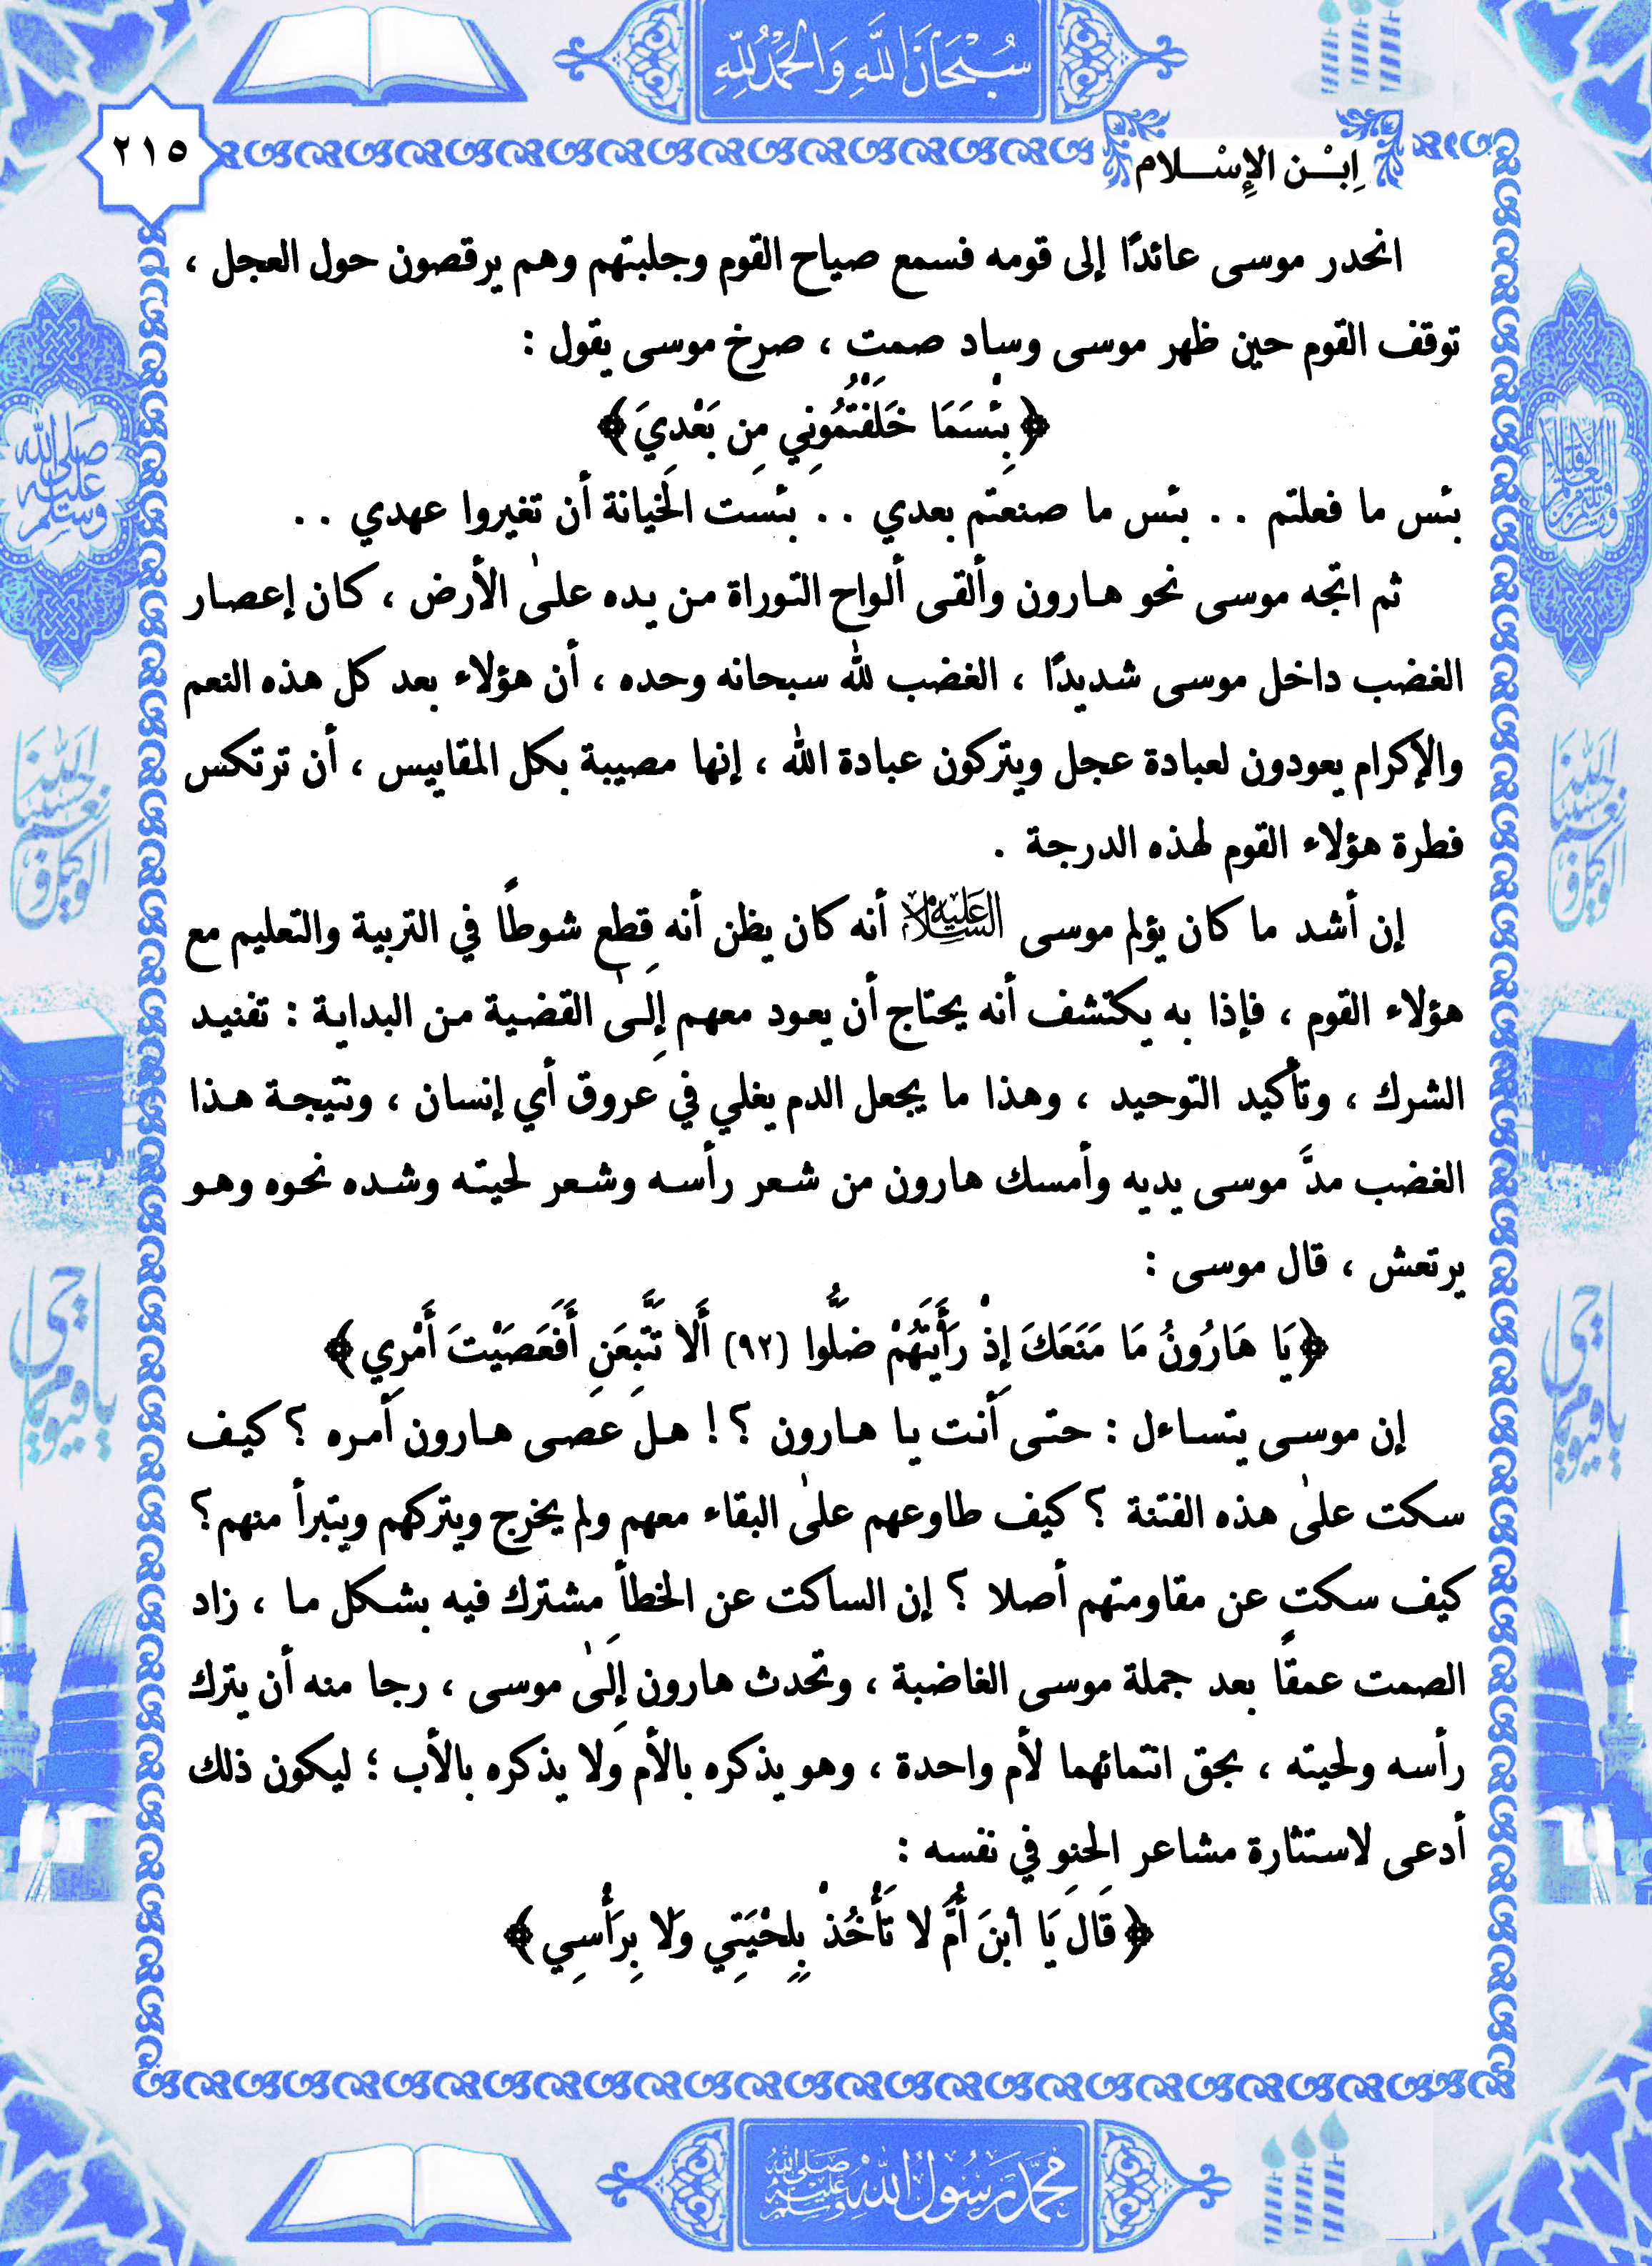 سُبْحَانَ اللَّهِ وَالْحَمْدُ لِلَّهِ
٢١٥
اِبْـن الإِسْـلام
انحدر موسى عائدًا إلى قومه فسمع صياح القوم وجلبتهم وهم يرقصون حول العجل ،
توقف القوم حين ظهر موسى وساد صمت ، صرخ موسى يقول :
﴿بِئْسَمَا خَلَفْتُمُونِي مِن بَعْدِيَ﴾
بئس ما فعلتم . . بئس ما صنعتم بعدي . . بئست الخيانة أن تغيروا عهدي . .
ثم اتجه موسى نحو هارون وألقى ألواح التوراة من يده علىٰ الأرض ، كان إعصار
الغضب داخل موسى شديدًا ، الغضب لله سبحانه وحده ، أن هؤلاء بعد كل هذه النعم
والإكرام يعودون لعبادة عجل ويتركون عبادة الله ، إنها مصيبة بكل المقاييس ، أن ترتكس
فطرة هؤلاء القوم لهذه الدرجة .
إن أشد ما كان يؤلم موسى عليه السلام أنه كان يظن أنه قطع شوطًا في التربية والتعليم مع
هؤلاء القوم ، فإذا به يكتشف أنه يحتاج أن يعود معهم إِلىٰ القضية من البداية : تفنيد
الشرك ، وتأكيد التوحيد ، وهذا ما يجعل الدم يغلي في عروق أي إنسان ، ونتيجة هذا
الغضب مدَّ موسى يديه وأمسك هارون من شعر رأسه وشعر لحيته وشده نحوه وهو
يرتعش ، قال موسى :
﴿يَا هَارُونُ مَا مَنَعَكَ إِذْ رَأَيْتَهُمْ ضَلُّوا (٩٢) أَلاَ تَتَّبِعَنِ أَفَعَصَيْتَ أَمْرِي﴾
إن موسى يتساءل : حتى أنت يا هارون ؟! هل عصى هارون أمره ؟ كيف
سكت علىٰ هذه الفتنة ؟ كيف طاوعهم علىٰ البقاء معهم ولم يخرج ويتركهم ويتبرأ منهم؟
كيف سكت عن مقاومتهم أصلا ؟ إن الساكت عن الخطأ مشترك فيه بشكل ما ، زاد
الصمت عمقًا بعد جملة موسى الغاضبة ، وتحدث هارون إِلَىٰ موسى ، رجا منه أن يترك
رأسه ولحيته ، بحق انتمائهما لأم واحدة ، وهو يذكره بالأم ولا يذكره بالأب ؛ ليكون ذلك
أدعى لاستثارة مشاعر الحنو في نفسه :
﴿قَالَ يَا ابْنَ أُمَّ لا تَأْخُذْ بِلِحْيَتِي وَلا بِرَأْسِي﴾
صلى الله عليه وسلم
حسبنا الله ونعم الوكيل
حسبنا الله ونعم الوكيل
يا حي يا قيوم
يا حي يا قيوم
مُحَمَّد رَسُولُ اللَّه صَلَّى اللَّه عَلَيْهِ وَسَلَّم